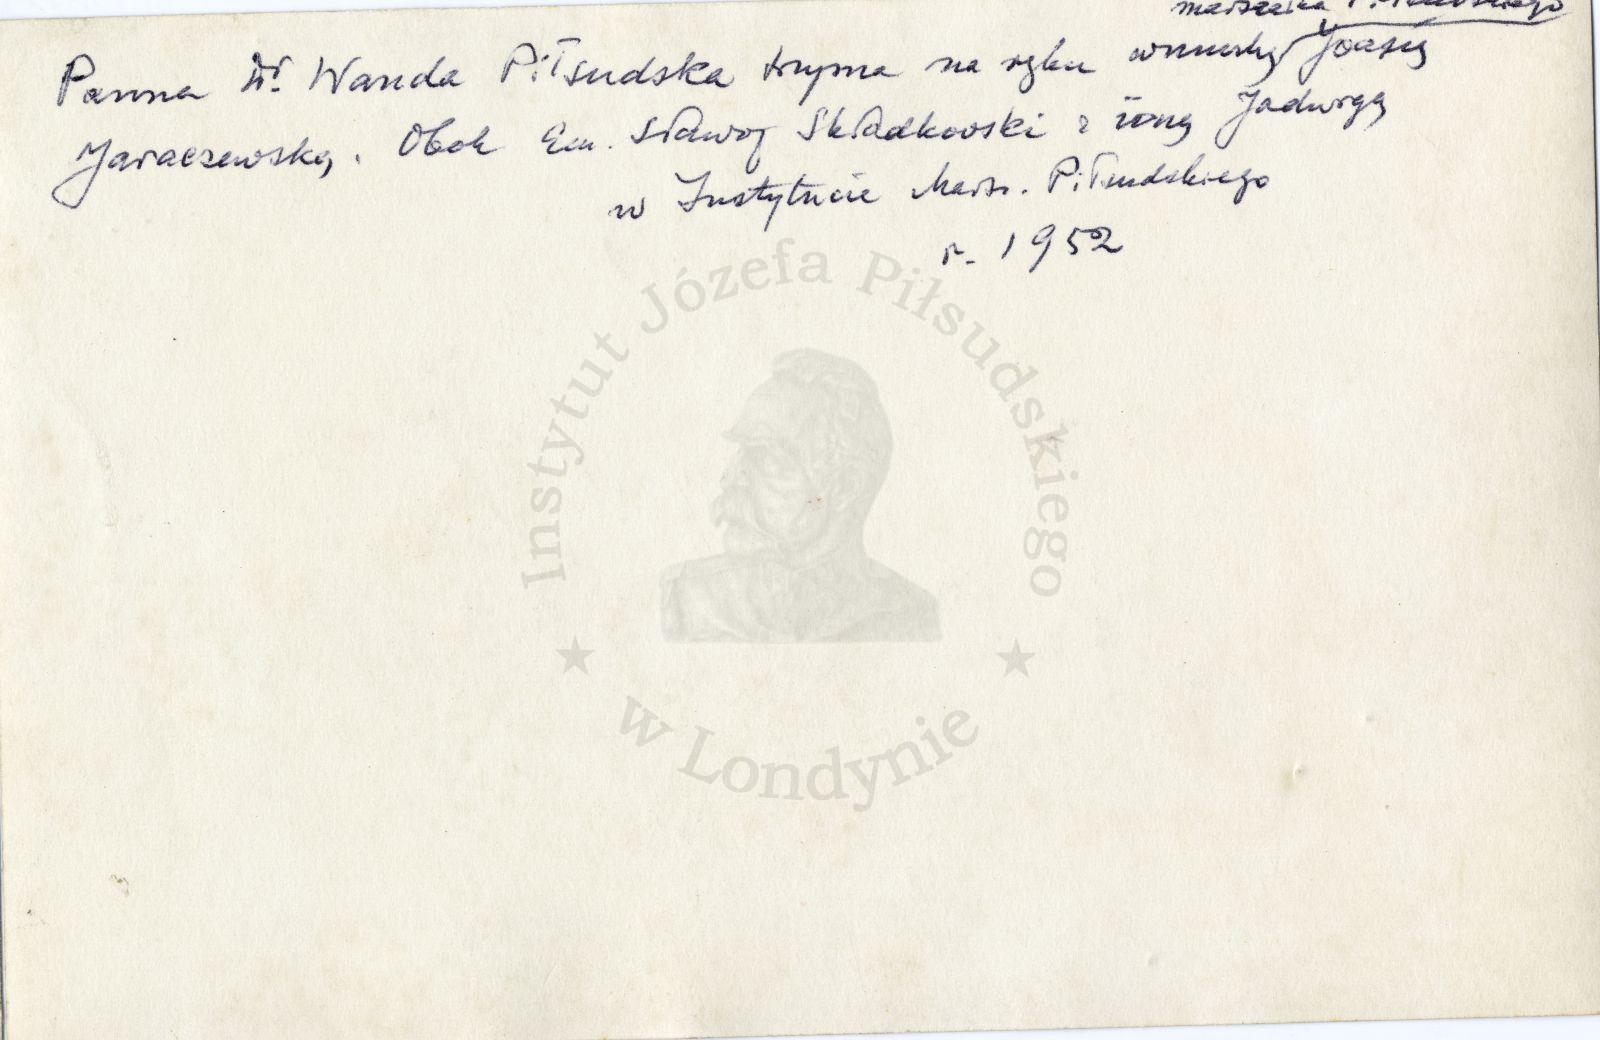 marszałka Piłsudskiego
Panna Dr. Wanda Piłsudska trzyma na ręku wnuczkę Joasię
Jaraczewską. Obok Em. Sławoj Składkowski z żoną Jadwigą
w Instytucie Marsz. Piłsudskiego
r. 1952
Instytut Józefa Piłsudskiego
w Londynie